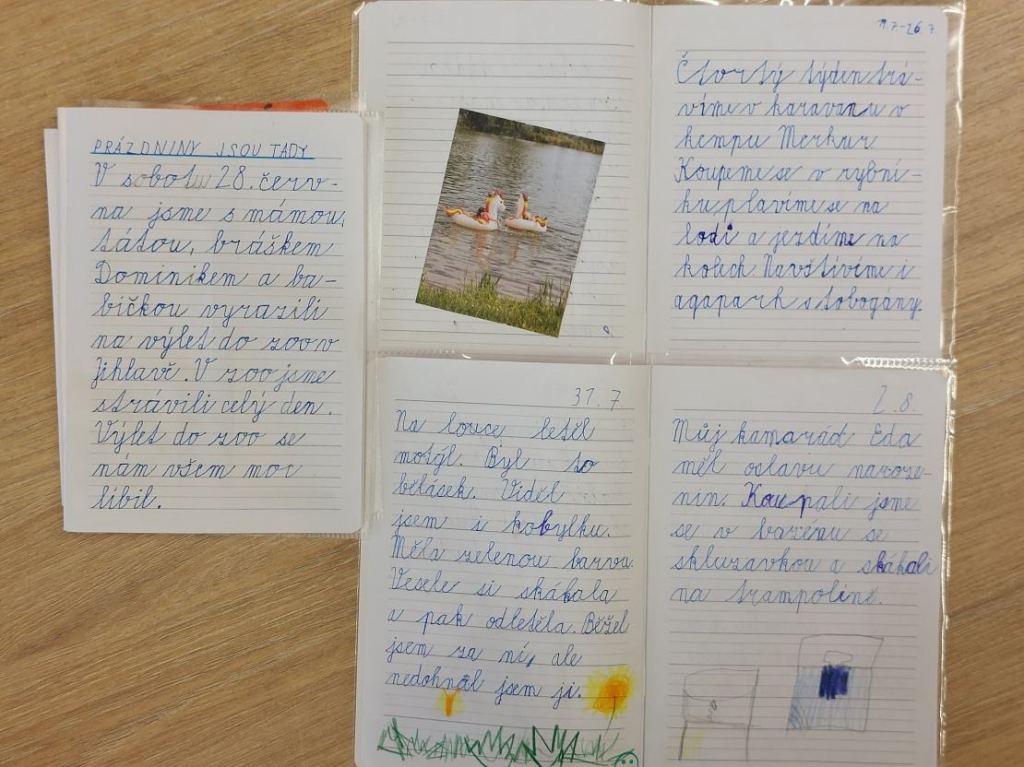 PRÁZDNINY JSOU TADY
V sobotu 28. červ-
na jsme s mámou,
tátou, bráškem
Dominikem a ba-
bičkou vyrazili
na výlet do zoo v
Jihlavě. V zoo jsme
strávili celý den.
Výlet do zoo se
nám všem moc
líbil.
7.-26.7.
Čtvrtý týden trá-
víme v karavanu v
kempu Merkur
Koupeme se v rybní-
ku plavíme se na
lodi a jezdíme na
kolech Navštívíme i
agapark s tobogány.
31.7.
Na louce letěl
motýl. Byl to
bělásek. Viděl
jsem i kobylku.
Měla zelenou barvu.
Vesele si skákala
a pak odletěla. Běžel
jsem za ní, ale
nedohnal jsem ji.
2.8.
Můj kamarád Eda
měl oslavu naroze-
nin. Koupali jsme
se v bazénu se
skluzavkou a skákali
na trampolíně.